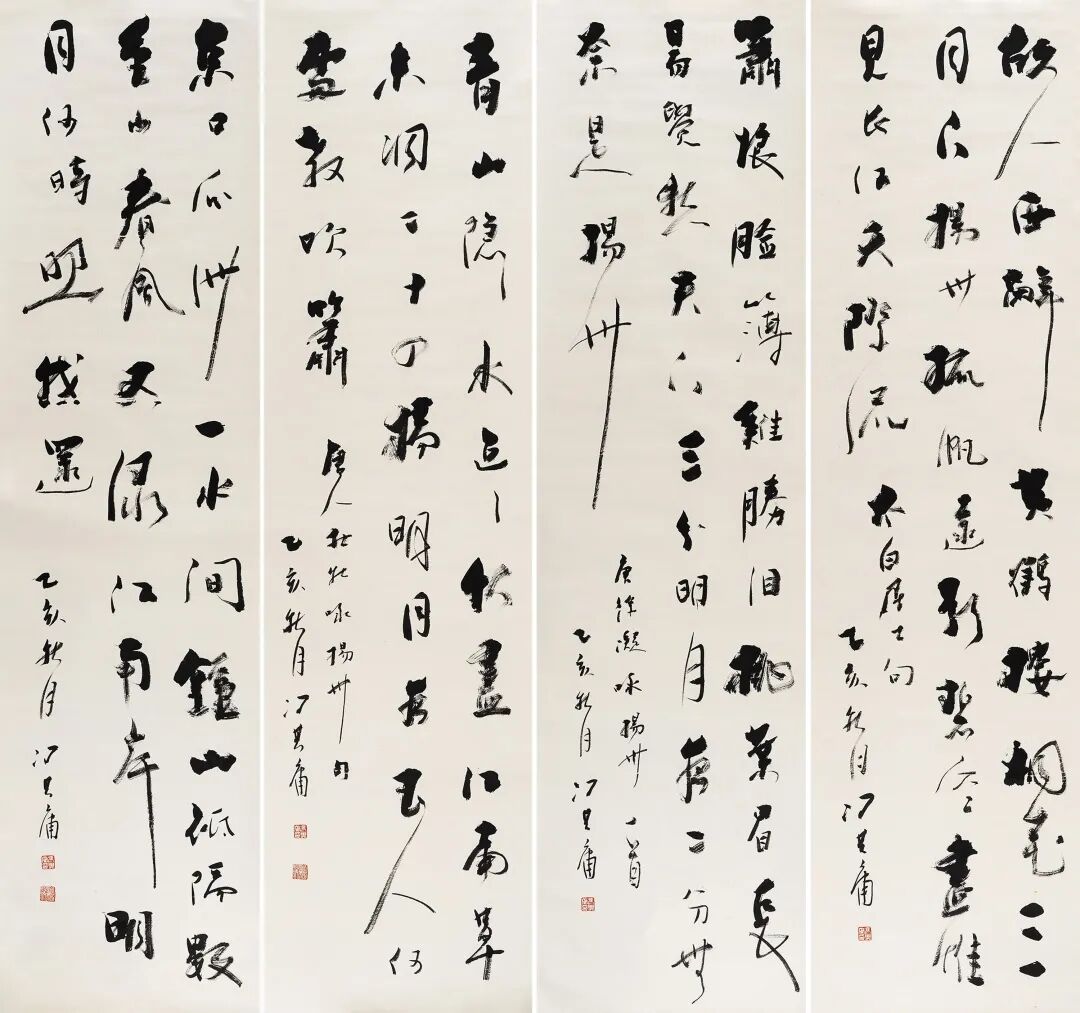 故人西辭黃鶴樓烟花三
月下揚州孤帆遠影碧空盡惟
見長江天際流
太白居士句
乙亥秋月馮其庸
蕭娘臉薄難勝泪桃葉眉長
易覺愁天下三分明月夜二分無
奈是揚州
唐徐凝咏揚州一首
乙亥秋月馮其庸
青山隱隱水迢迢秋盡江南草
未凋二十四橋明月夜玉人何
處教吹簫
唐人杜牧咏揚州句
乙亥秋月馮其庸
京口瓜洲一水間鍾山祇隔數
重山春風又綠江南岸明
月何時照我還
乙亥秋月馮其庸